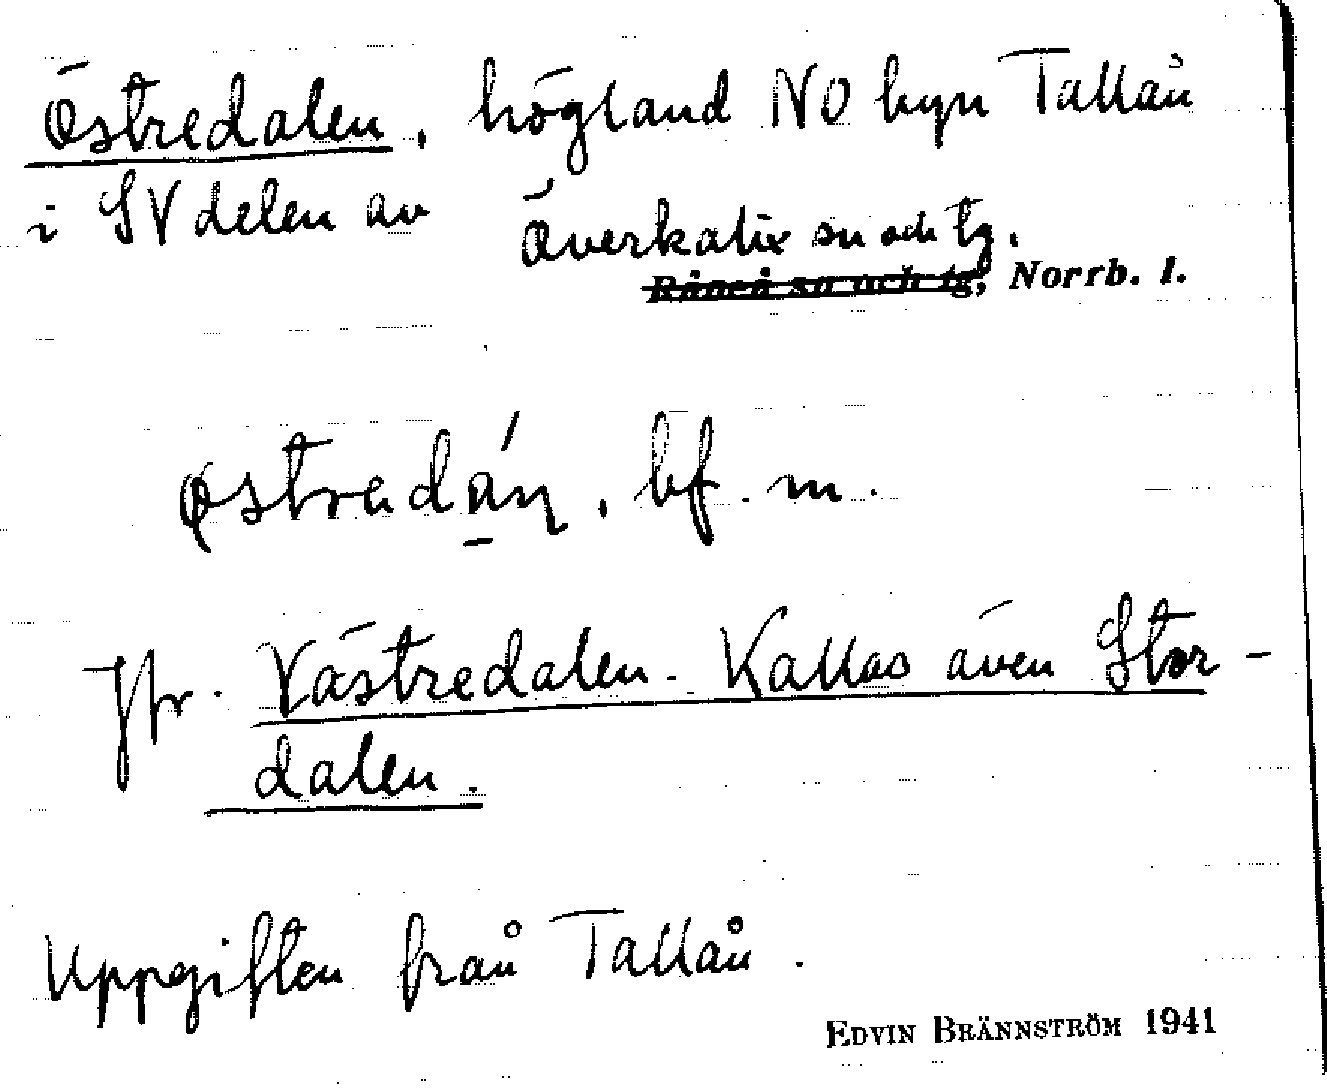 Östredalen, högland NO byn Tallån
i SV delen av Överkalix sn och tg.
Råneå sn och tg, Norrb. l.
östradán, bf. m.
Jfr. Västredalen. Kallas även Stor-
dalen.
Uppgiften från Tallån.
EDVIN BRÄNNSTRÖM 1941